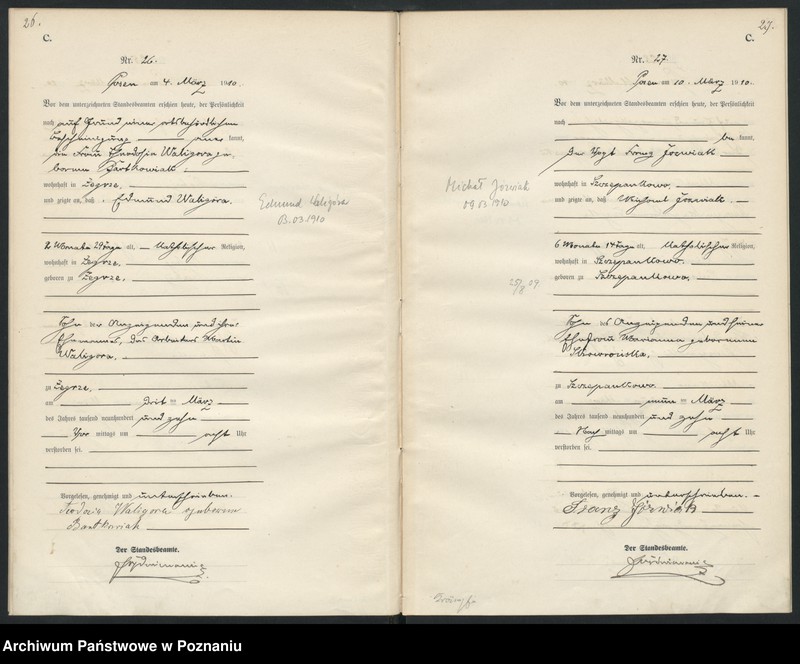 26.
C.
Nr. 26.
Posen am 4. März 1910.
Vor dem unterzeichneten Standesbeamten erschien heute, der Persönlichkeit
nach auf Grund einer ortsbehördlichen
Bescheinigung aner kannt,
die Frau Theodosia Waligora ge-
borene Bartkowiak
wohnhaft in Zegrze,
und zeigte an, daß Edmund Waligora.
2 Monate 29 Tage alt, katholischer Religion,
wohnhaft in Zegrze.
geboren zu Zegrze.
Sohn der Anzeigenden und ihres
Ehemannes, des Arbeiters Martin
Waligora.
zu Zegrze.
am Drit ten März
des Jahres tausend neunhundert und zehn
Vor mittags um acht Uhr
verstorben sei.
Vorgelesen, genehmigt und unterschrieben.
Waligora geborene
Bartkowiak
Der Standesbeamte.
Edmund Waligóra
03.03.1910
27.
C.
Nr. 27
Posen am 10. März 1910.
Vor dem unterzeichneten Standesbeamten erschien heute, der Persönlichkeit
nach
be kannt,
Der Vogt Franz Jozwiak
wohnhaft in Szczepankowo.
und zeigte an, daß Michael Jozwiak
6 Monate 14 Tage alt, katholischer Religion,
wohnhaft in Szczepankowo.
geboren zu Szczepankowo.
Sohn des Anzeigenden und seiner
Ehefrau Marianna geborenen
zu Szczepankowo.
am neun ten März
des Jahres tausend neunhundert und zehn
Nach mittags um acht Uhr
verstorben sei.
Vorgelesen, genehmigt und unterschrieben.
Franz Jóźwiak
Der Standesbeamte.
Michał Jóźwiak
09.03.1910
25/8 09.
Archiwum Państwowe w Poznaniu